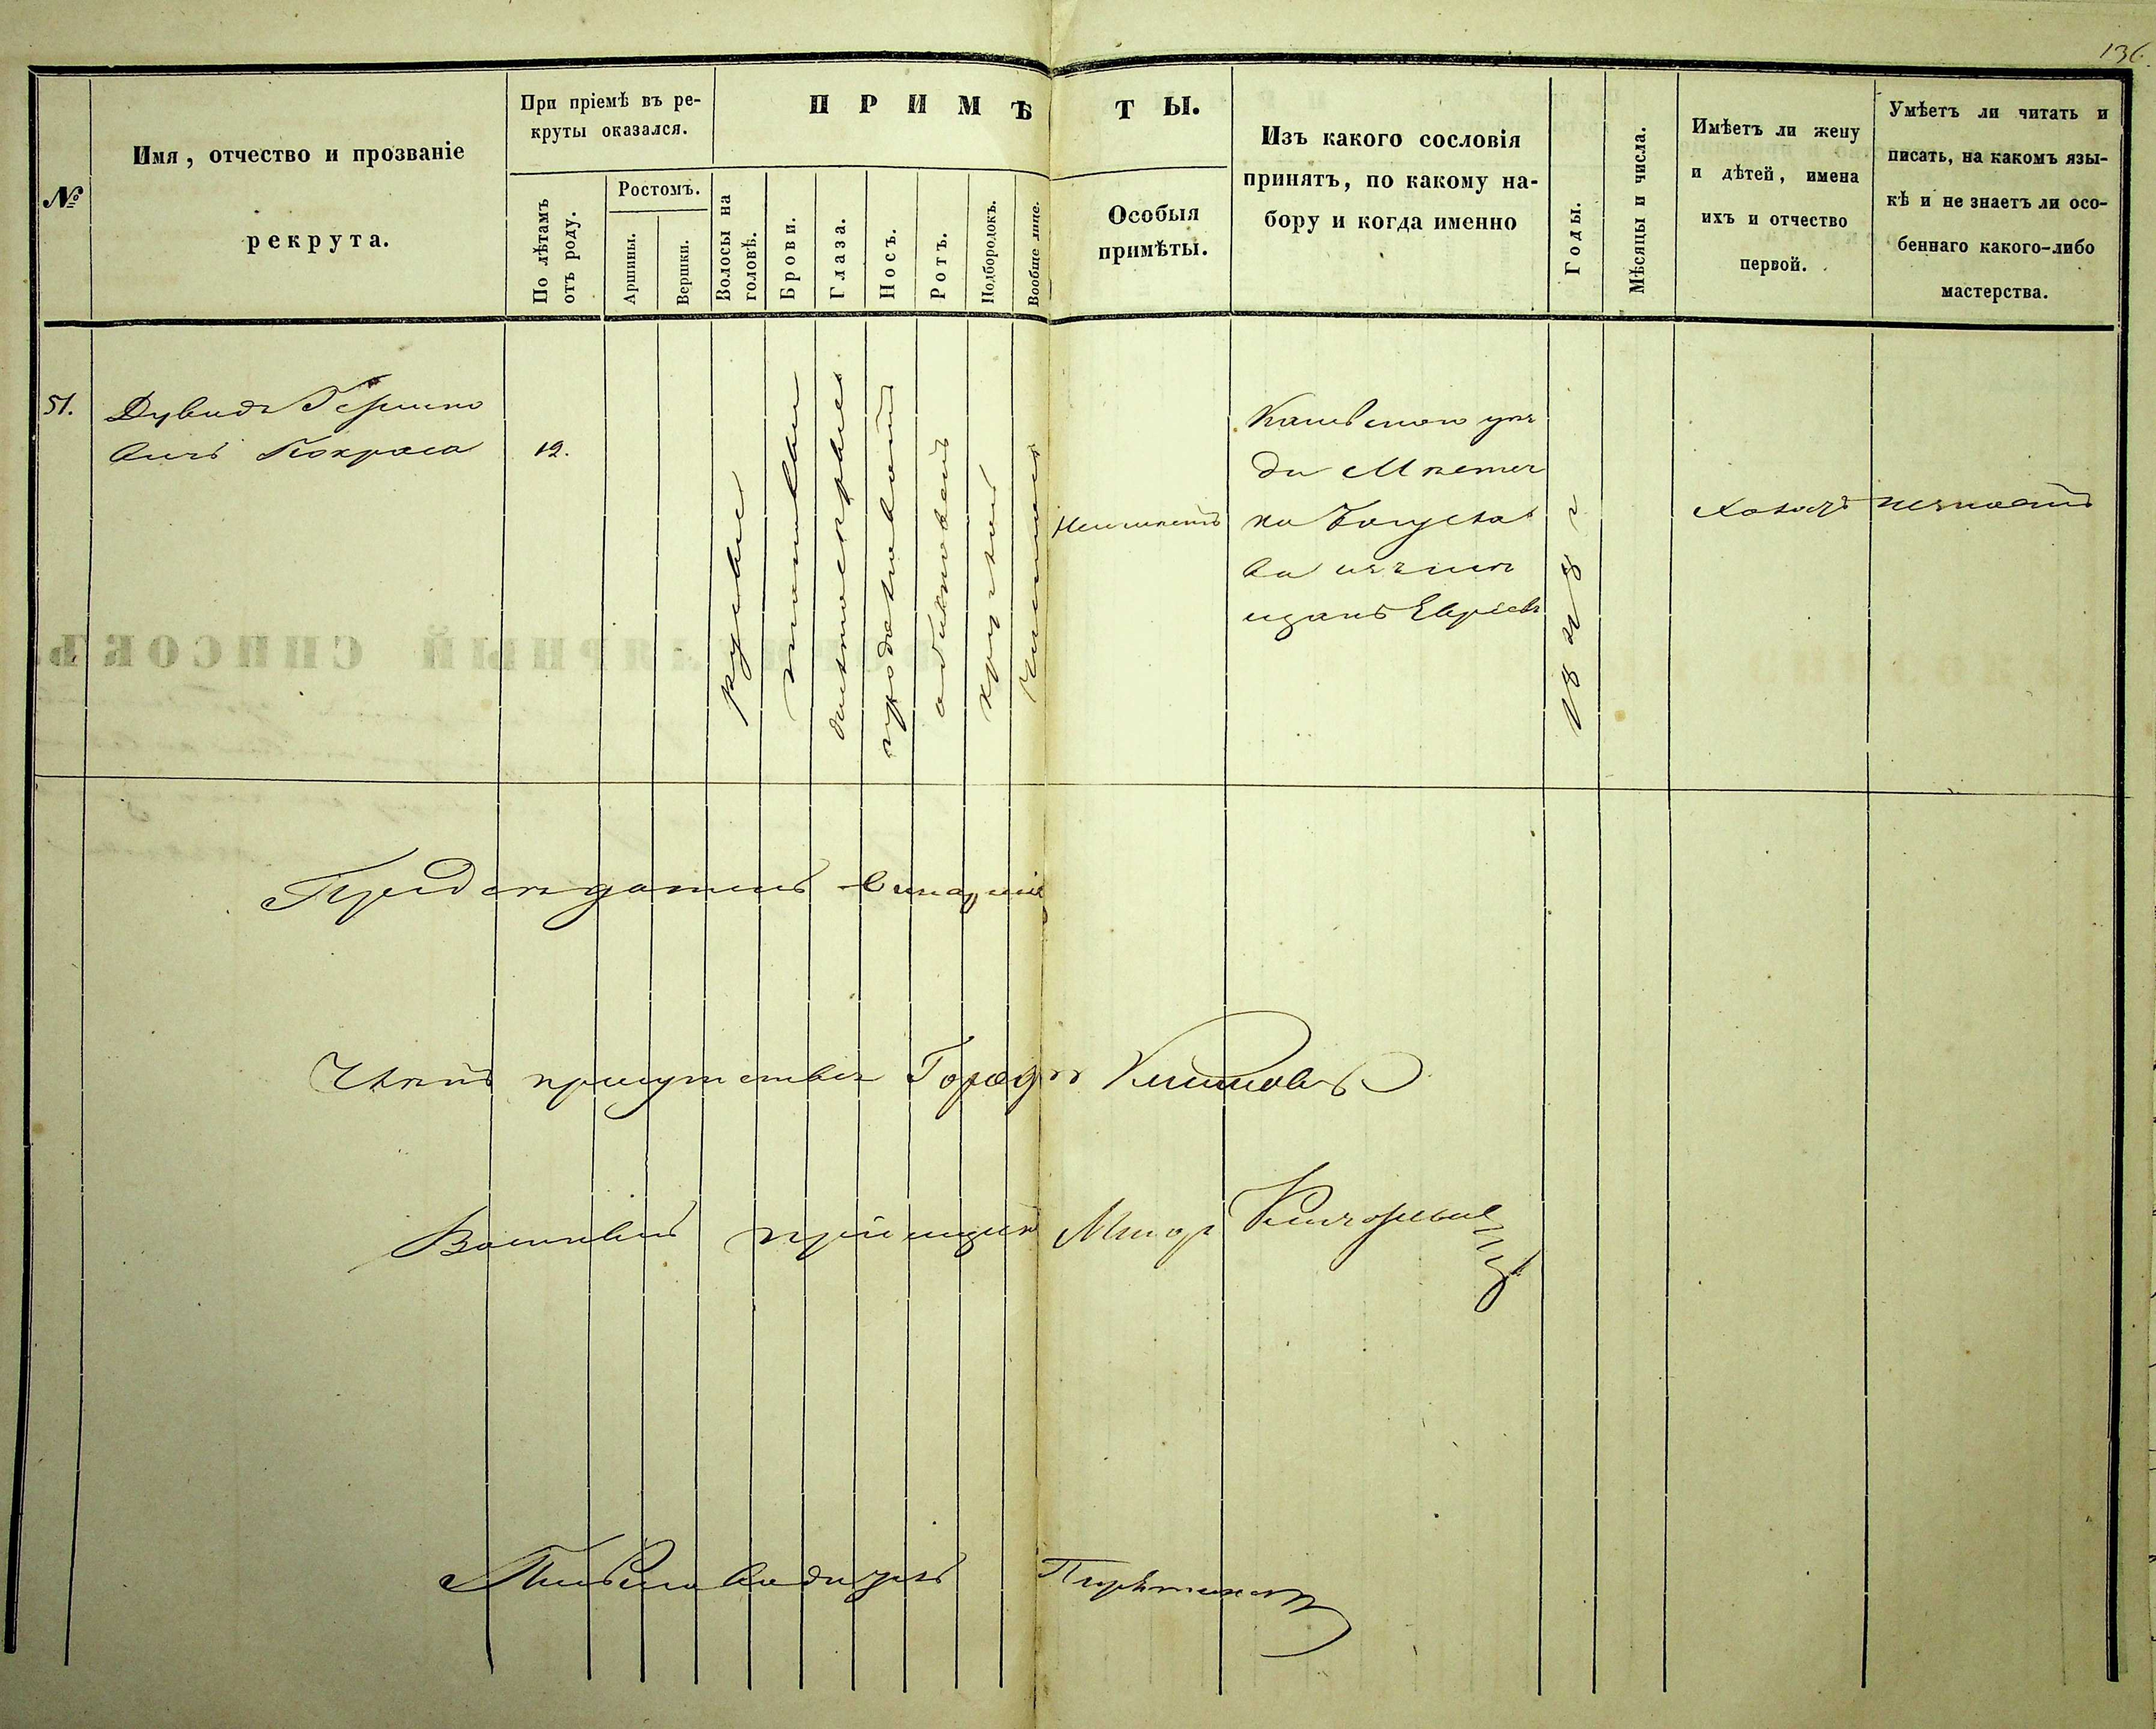 136.
№
Имя, отчество и прозваніе
рекрута.
При пріемѣ въ ре-
круты оказался.
По лѣтамъ
отъ роду.
Ростомъ.
Аршины.
Вершки.
ПРИМѢТЫ.
Волосы на
головѣ.
Брови.
Глаза.
Носъ.
Ротъ.
Подбородокъ.
Вообще лице.
Особыя
примѣты.
Изъ какого сословія
принятъ, по какому на-
бору и когда именно
Годы.
Мѣсяцы и числа.
Имѣетъ ли жену
и дѣтей, имена
ихъ и отчество
первой.
Умѣетъ ли читать и
писать, на какомъ язы-
кѣ и не знаетъ ли осо-
беннаго какого-либо
мастерства.
51.
Дувидъ Гершко
вичъ Покраса
12.
русые
темнокарие
продолговатый
обикновенъ
круглый
чистое
Неимѣетъ
Каневского уѣз
да Мѣстеч
ка Богусла
ва изъ мѣ
щанъ Евреевъ
1848 г
Холостъ
незнаетъ
Предсѣдатель
Членъ присутствія Городн
Военный пріемщикъ Маіоръ